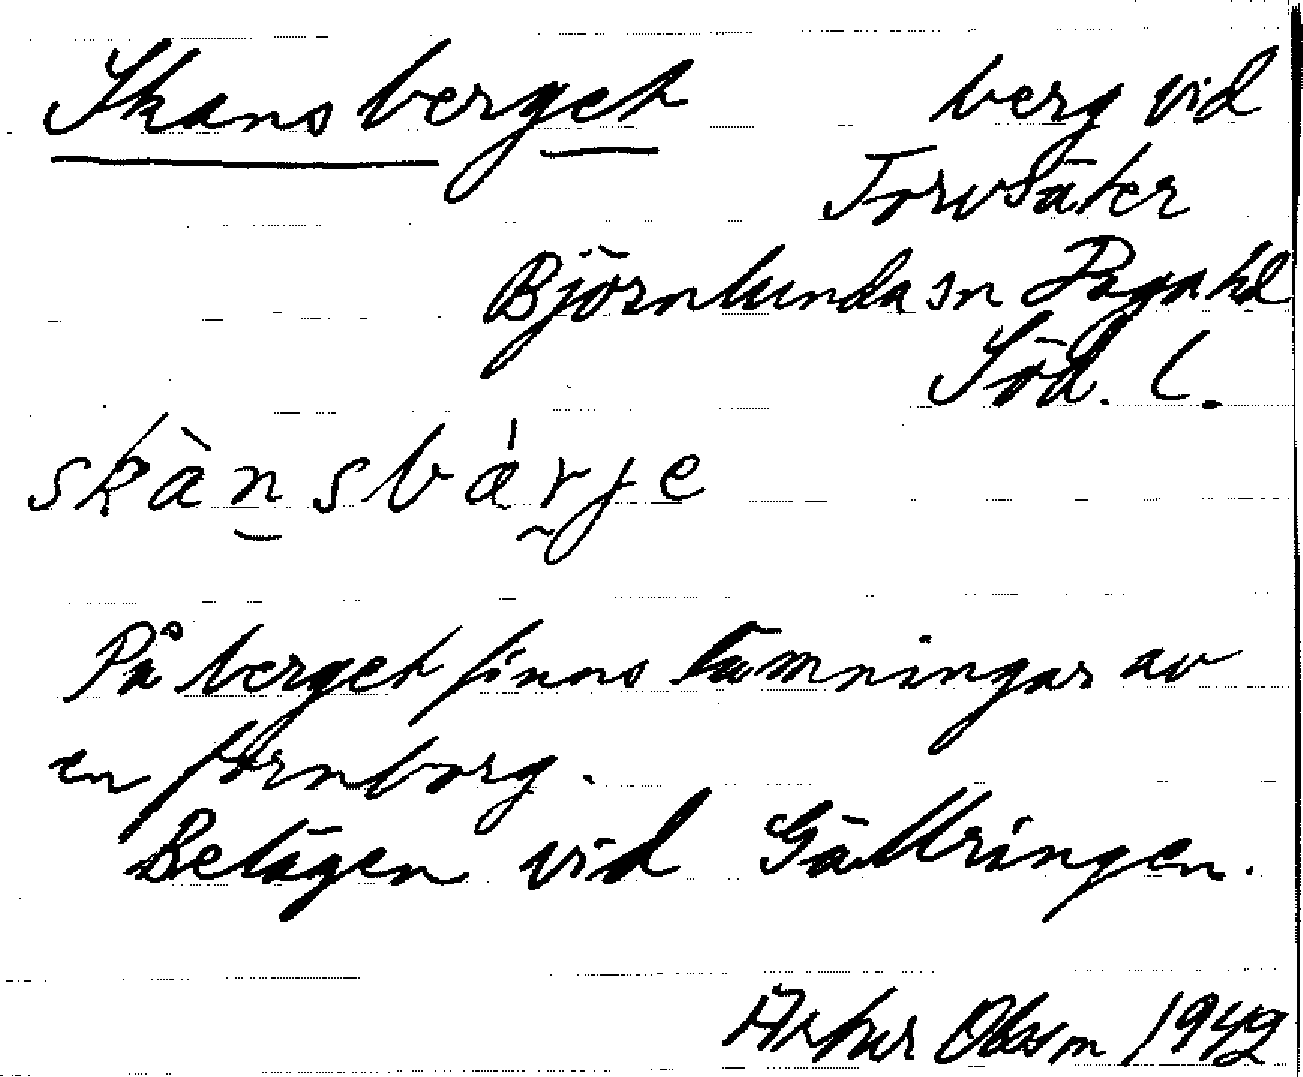 Skansberget berg vid
Torvsäter
Björnlunda sn Daga hd
Söd. l.
skànsbárje
På berget finns lämningar av
en fornborg.
Belägen vid Gälltringen.
Arthur Olsson 1942